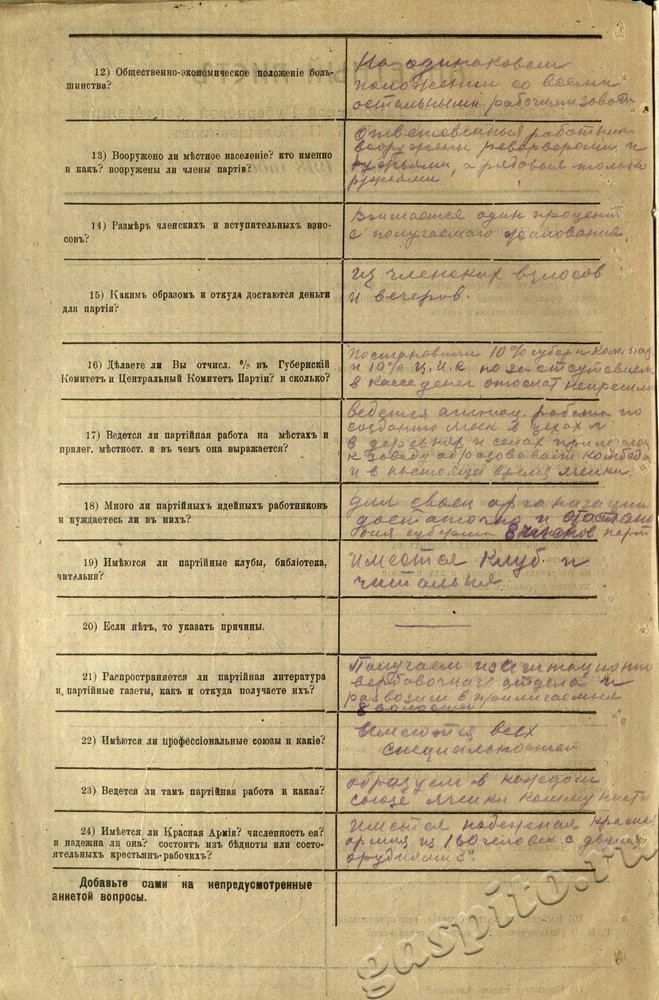 12) Общественно-экономическое положеніе боль-
шинства?
На одинаковом
положении со всеми
остальными рабочими завода
13) Вооружено ли мѣстное населеніе? кто именно
и какъ? вооружены ли члены партіи?
Ответственныя работники
вооружены револьверами и
ружьями, а рядовыя только
ружьями
14) Размѣръ членскихъ и вступительныхъ взно-
совъ?
Взимается один процент
с получаемаго жалования
15) Какимъ образомъ и откуда достаются деньги
для партіи?
из членских взносов
и вечеров.
16) Дѣлаете ли Вы отчисл. % въ Губернскій
Комитетъ и Центральный Комитетъ Партіи? и сколько?
Постановили 10% губерн. ком.
и 10% Ц.И.К но за отсутствием
в кассе денег отослат не
17) Ведется ли партійная работа на мѣстахъ и
прилег. мѣстност. и въ чемъ она выражается?
ведется работа по
созданию ячеек в цехах и
в деревнях и селах
к заводу образовывать комбеды
и в настоящее время ячейки.
18) Много ли партійныхъ идейныхъ работниковъ
и нуждаетесь ли въ нихъ?
для своей организации
достаточно и
для губернии 8 членов парт
19) Имѣются ли партійные клубы, библіотека,
читальня?
имеются клуб и
читальня
20) Если нѣтъ, то указать причины.
21) Распространяется ли партійная литература
и партійные газеты, какъ и откуда получаете ихъ?
Получаем из агитационно
вербовочного отдела и
развозим в прилегаемыя
8 волостей
22) Имѣются ли профессіональные союзы и какіе?
имеются всех
специальностей
23) Ведется ли тамъ партійная работа и какая?
образуем в каждом
союзе ячейки коммунист
24) Имѣется ли Красная Армія? численность ея?
и надежна ли она? состоитъ изъ бѣдноты или состо-
ятельныхъ крестьянъ-рабочихъ?
имеется надежная красная
армия из 160 человек с двумя
орудиями 3"
Добавьте сами на непредусмотренные
анкетой вопросы.
gaspito.ru